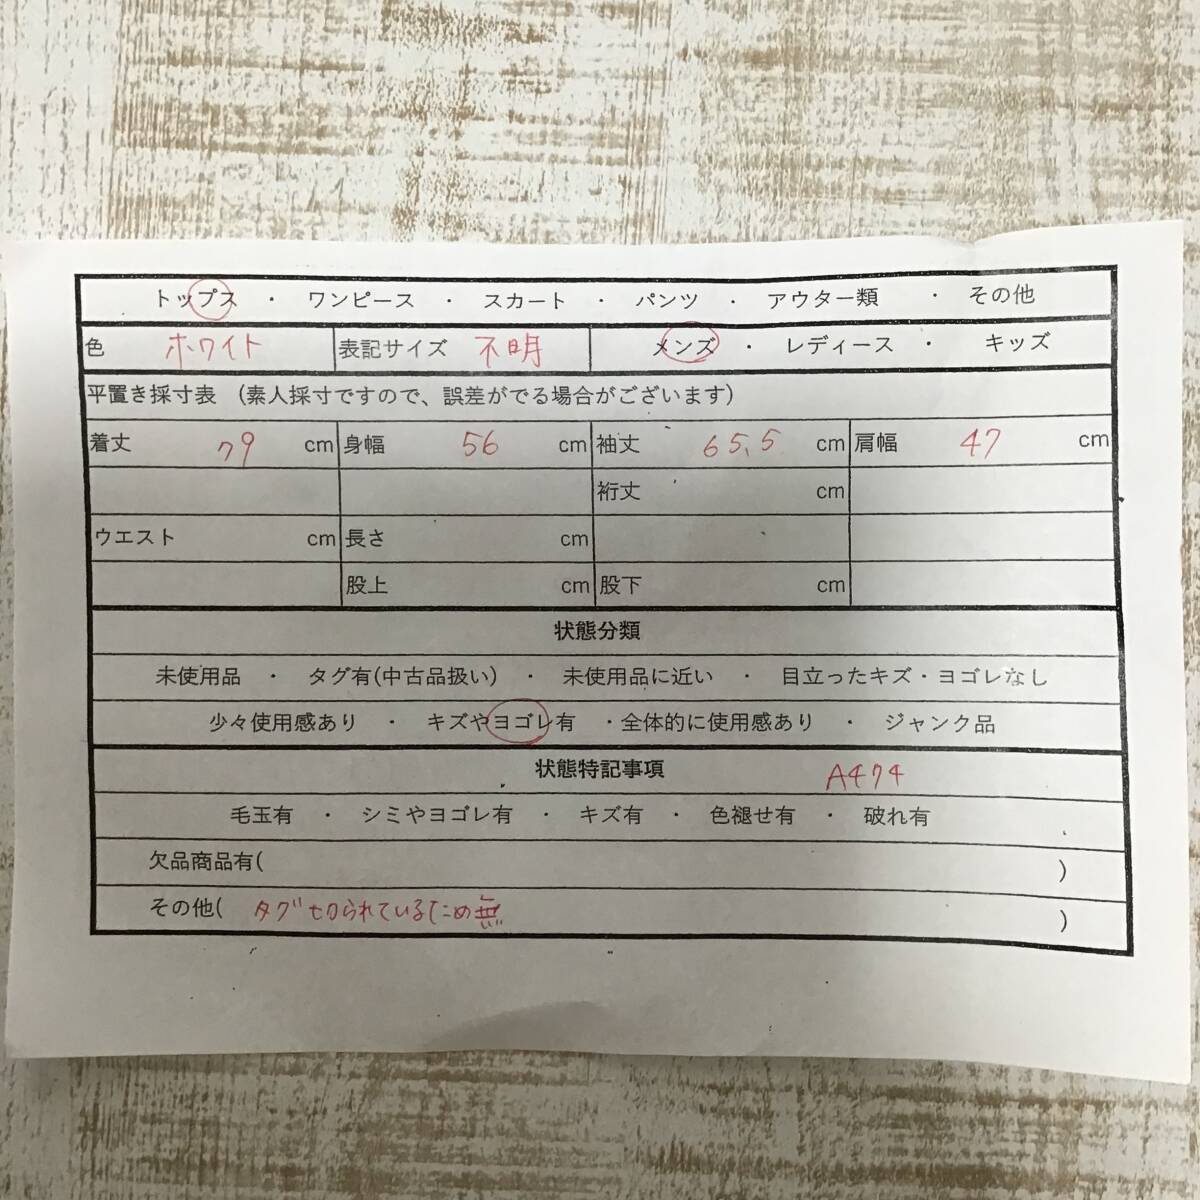 トップス ・ ワンピース ・ スカート ・ パンツ ・ アウター類 ・ その他
色 ホワイト 表記サイズ 不明 メンズ ・ レディース ・ キッズ
平置き採寸表 (素人採寸ですので、誤差がでる場合がございます)
着丈 79 cm 身幅 56 cm 袖丈 65.5 cm 肩幅 47 cm
裄丈 cm
ウエスト cm 長さ cm
股上 cm 股下 cm
状態分類
未使用品 ・ タグ有(中古品扱い) ・ 未使用品に近い ・ 目立ったキズ・ヨゴレなし
少々使用感あり ・ キズやヨゴレ有 ・全体的に使用感あり ・ ジャンク品
状態特記事項 A474
毛玉有 ・ シミやヨゴレ有 ・ キズ有 ・ 色褪せ有 ・ 破れ有
欠品商品有( )
その他( タグ切られているため無 )